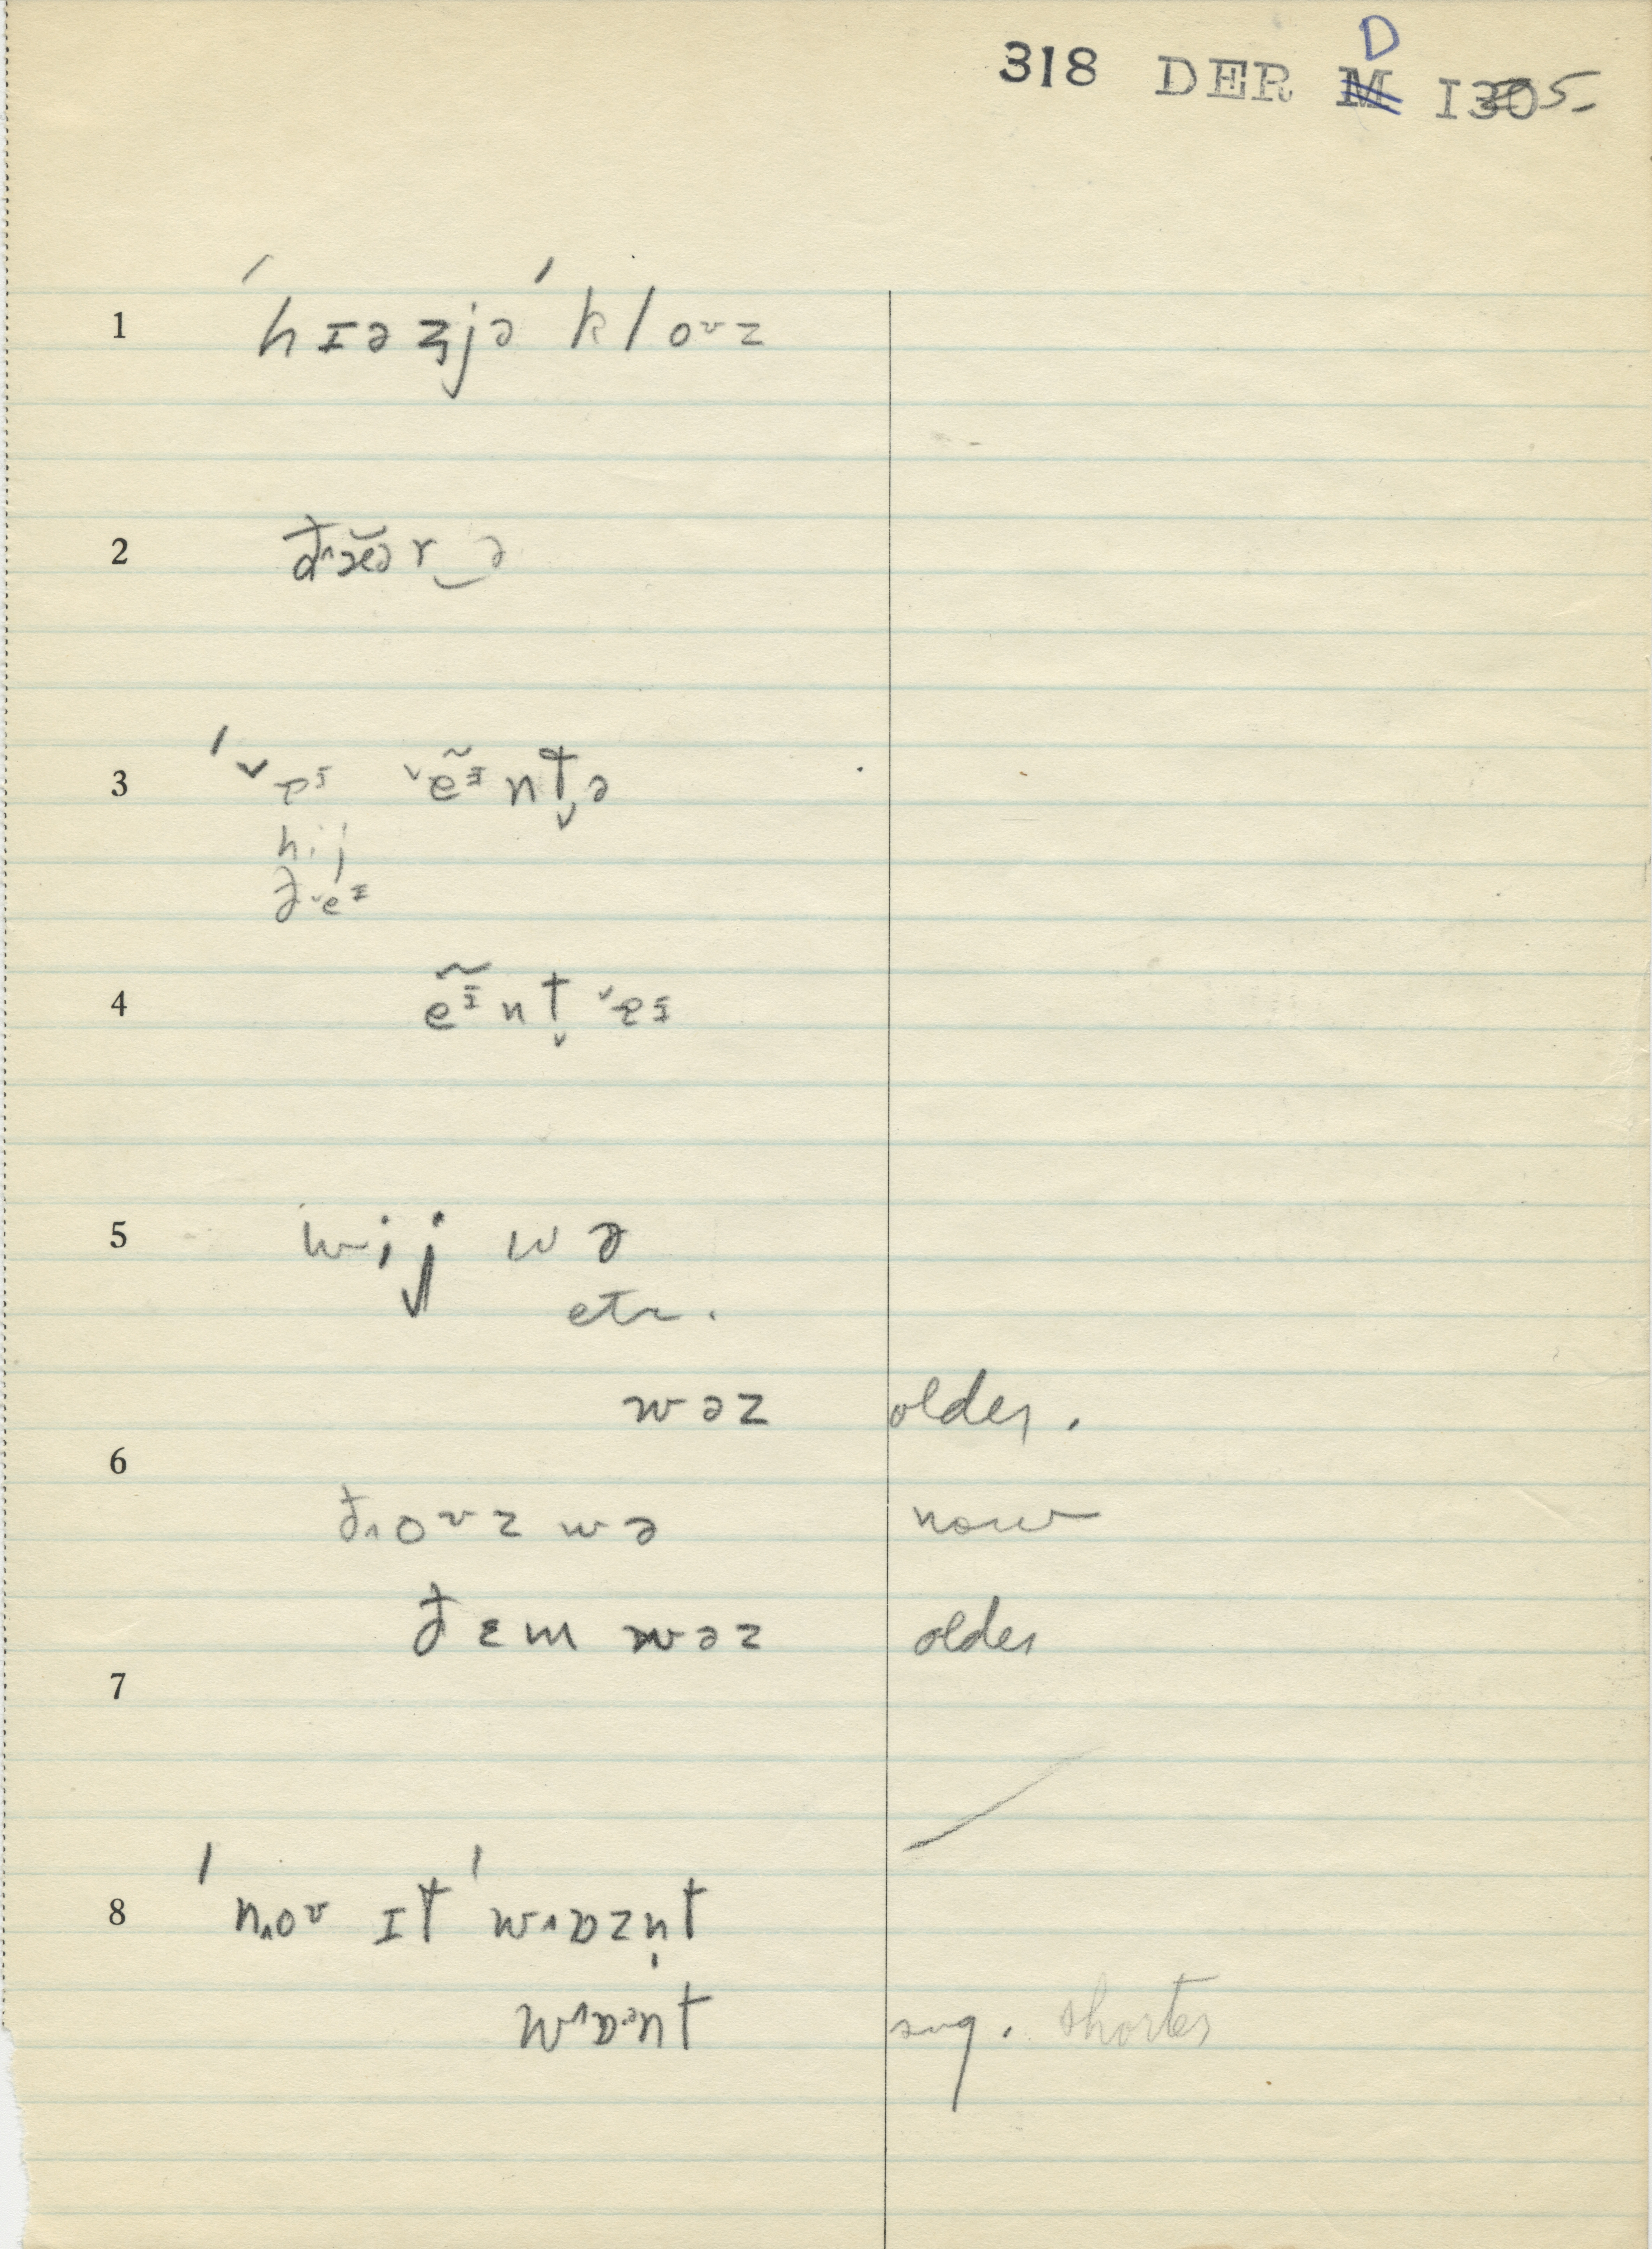 318 DER D I305-
1 ˈhɪəz̡jə ˈkloᴜz
2 ðæ̆ər‿ə
3 ˈˇɐɪ ˇẽɪnt̬ə
hij
ðˇeɪ
4 ẽɪnt̬ ˇɐɪ
5 wij wə
etc.
wəz older.
6
ð˄oᴜz wə now
ðɛm wəz older
7
8 ˈn˄oᴜ ɪt ˈw˄ɒzn̩t
w˄ɒənt sug. shorter